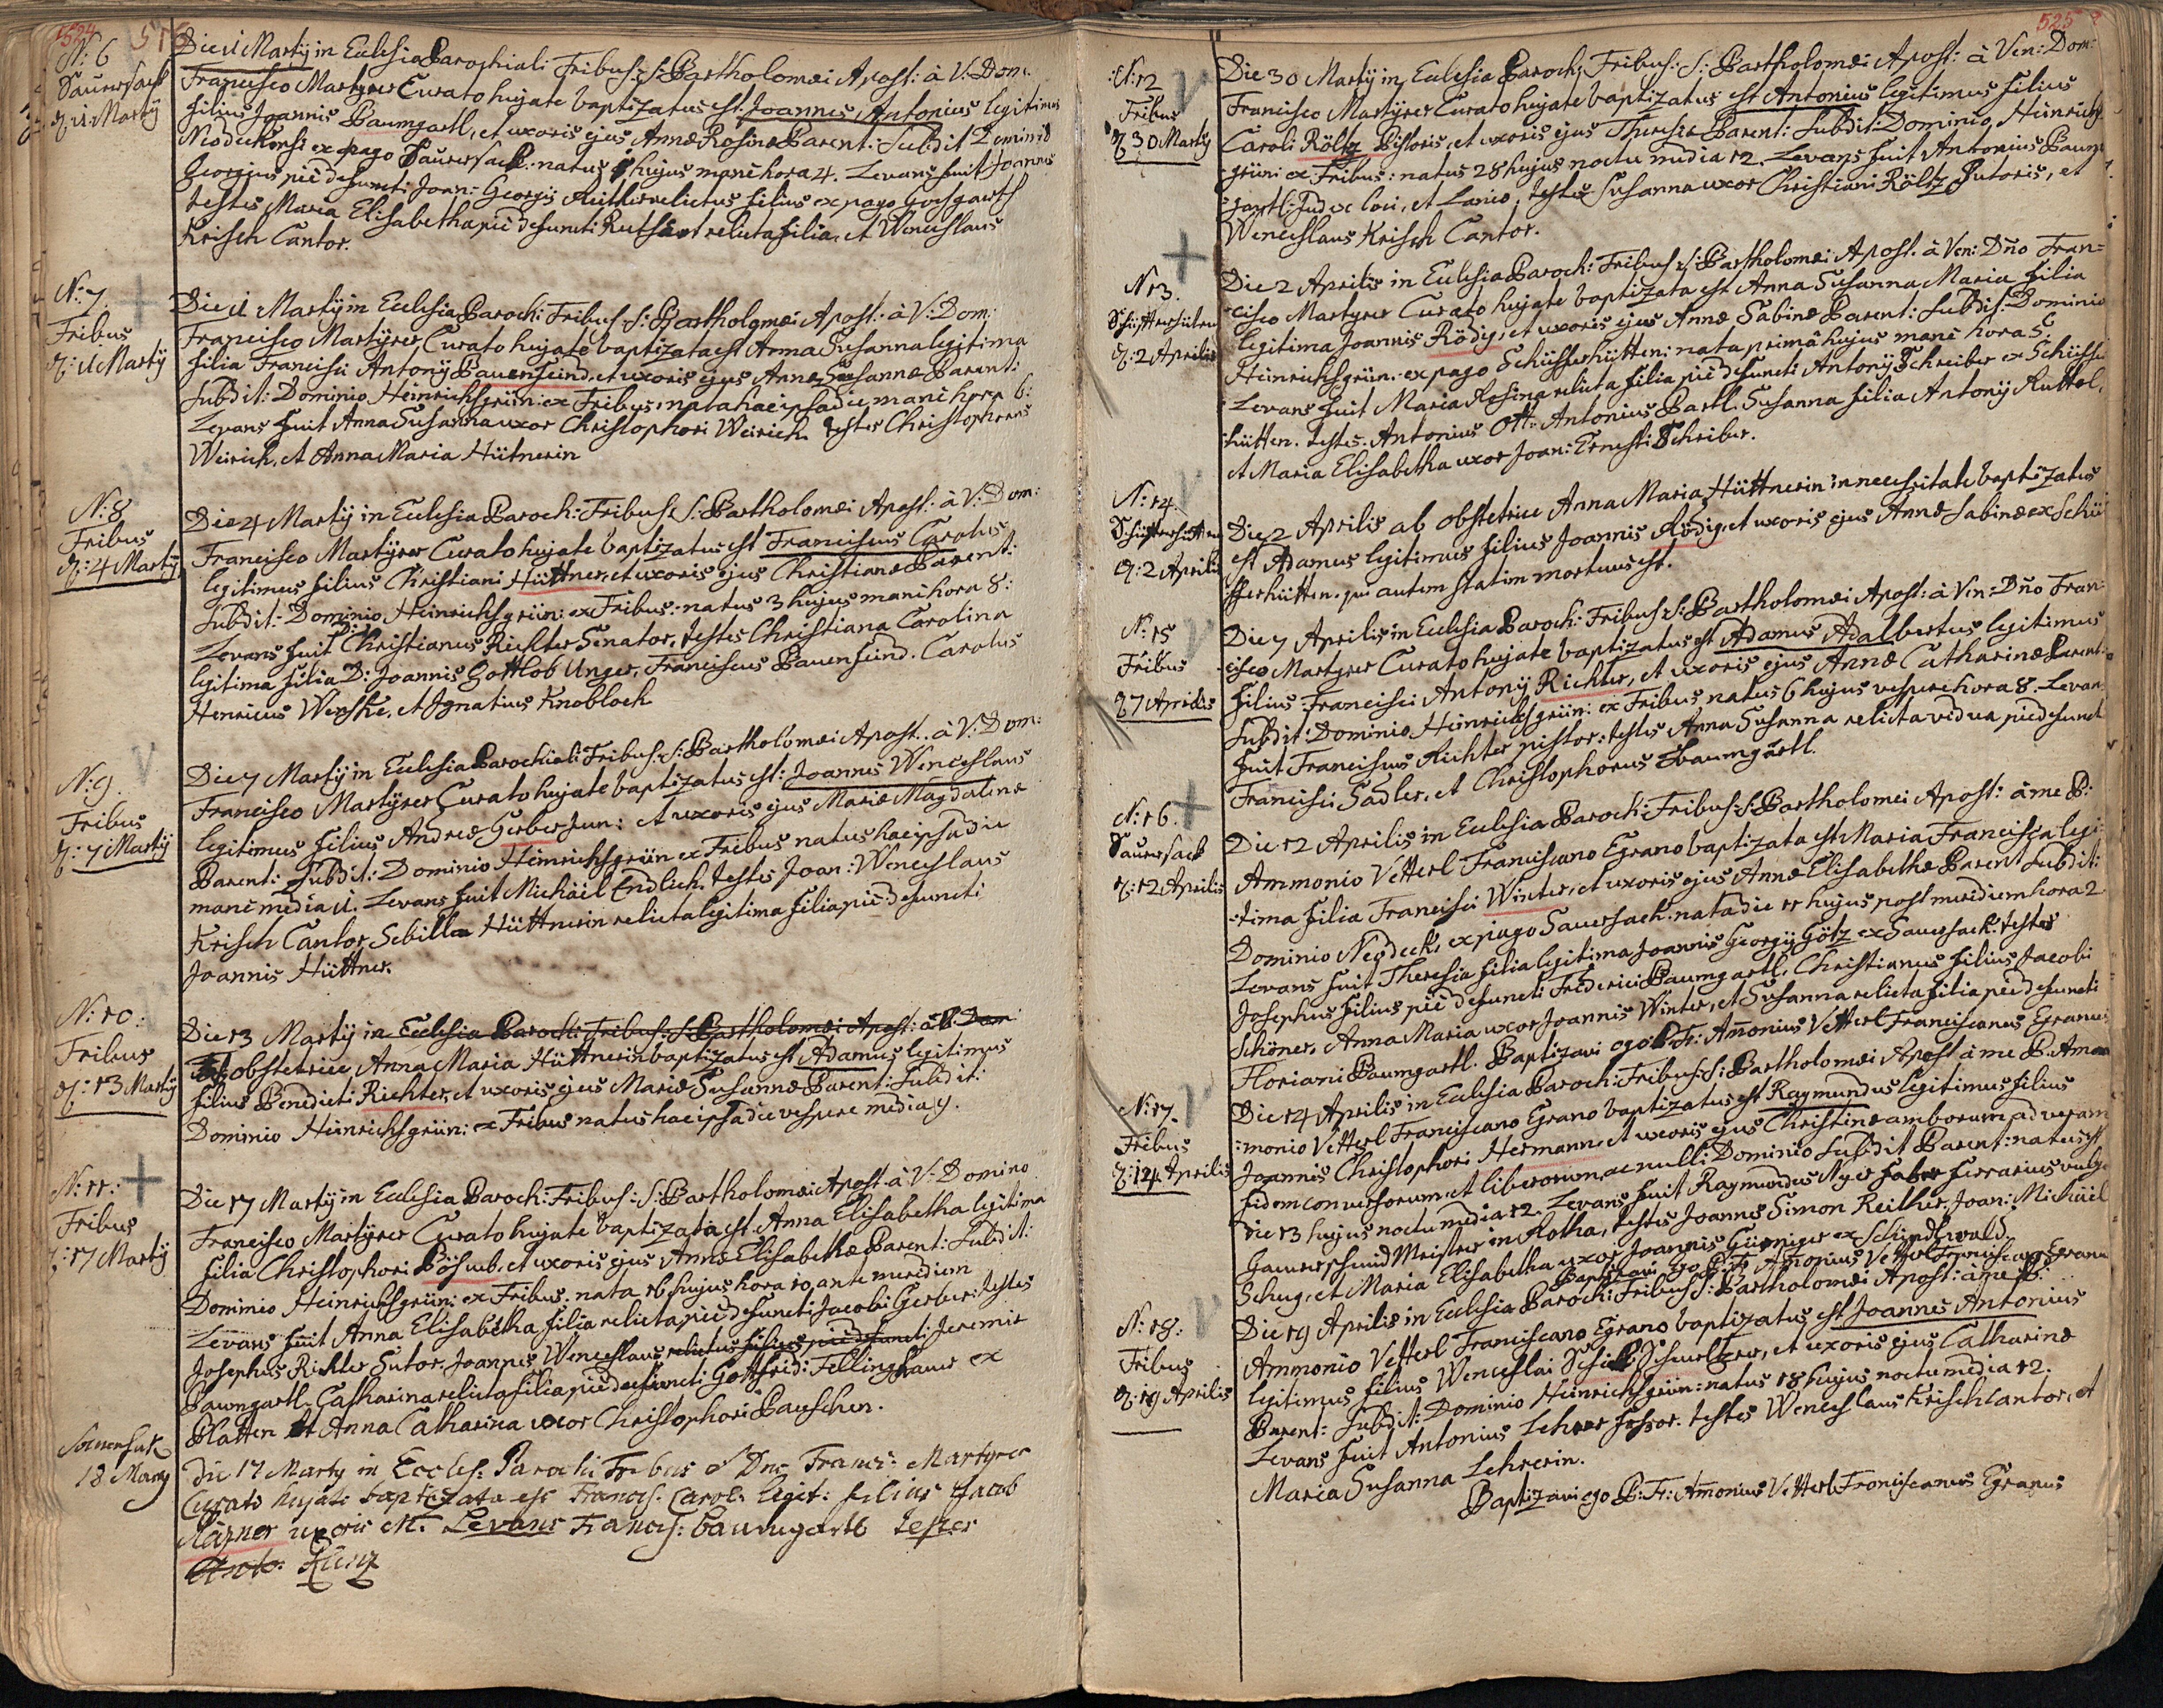 524
N: 6
Saüersack
d: 11 Martÿ
Die 11 Martÿ in Ecclesia Parochiali Fribus: S: Bartholomæi Apost: à V: Dom:
Francisco Martÿrer Curato hujate baptizatus est Joannes Antonius legitimus
filius Joannis Baumgartl, et uxoris ejus Annæ Rosinæ Parent: Subdit Dominio
Neudeckensi ex pago Saüersack: natus hujus manè hora 4. Levans fuit Joannes
Georgius piè defuncti Joan: Georgÿ Reither relictus filius ex pago
testes Maria Elisabetha piè defuncti relicta filia, et Wenceslaus
Krisch Cantor.
N: 7.
Fribus
d: 11 Martÿ
Die 11 Martÿ in Ecclesia Paroch: Fribus: S: Bartholomæi Apost: à V: Dom:
Francisco Martÿrer Curato hujate baptizata est Anna Susanna legitima
filia Francisci Antonÿ Bauenfeind, et uxoris ejus Annæ Susannæ Parent:
Subdit: Dominio Heinrichsgrün: ex Fribus, nata hac ipsa die manè hora 6:
Levans fuit Anna Susanna uxor Christophori Weirich. testes Christophorus
Weirich, et Anna Maria Hütnerin
N: 8
Fribus
d: 4 Martÿ
Die 4 Martÿ in Ecclesia Paroch: Fribus: S: Bartholomæi Apost: à V: Dom:
Francisco Martÿrer Curato hujate baptizatus est Franciscus Carolus
legitimus filius Christiani Hüttner, et uxoris ejus Christianæ Parent:
Subdit: Dominio Heinrichsgrün: ex Fribus: natus 3 hujus manè hora 8:
Levans fuit D: Christianus Richter Senator, testes Christiana Carolina
legitima filia D: Joannis Gottlob Unger, Franciscus Bauenfeind. Carolus
Henricus Wenske, et Ignatius Knobloch
N: 9.
Fribus
d: 7 Martÿ
Die 7 Martÿ in Ecclesia Parochiali Fribus: S: Bartholomæi Apost: à V: Dom:
Francisco Martÿrer Curato hujate baptizatus est: Joannes Wenceslaus
legitimus filius Andreæ Gerber Jun: et uxoris ejus Mariæ Magdalenæ
Parent: Subdit: Dominio Heinrichsgrün ex Fribus natus hac ipsa die
manè media 11. Levans fuit Michäel Endlich. testes Joan: Wenceslaus
Krisch Cantor Sebilla Hüttnerin relicta legitima filia piè defuncti
Joannis Hüttner.
N: 10:
Fribus
d: 13 Martÿ
Die 13 Martÿ in Ecclesia Paroch: Fribus: S: Bartholomæi Apost: à V: Dom
ab obstetrice Anna Maria Hüttnerin baptizatus est Adamus legitimus
filius Benedicti Richter, et uxoris ejus Mariæ Susannæ Parent: Subdit:
Dominio Heinrichsgrün: ex Fribus natus hac ipsa die vespere media 9.
N: 11:
Fribus
d: 17 Martÿ
Die 17 Martÿ in Ecclesia Paroch: Fribus: S: Bartholomæi Apost: à V: Domino
Francisco Martÿrer Curato hujate baptizata est Anna Elisabetha legitima
filia Christophori Böswb, et uxoris ejus Annæ Elisabethæ Parent: Subdit:
Dominio Heinrichsgrün: ex Fribus. nata 16 hujus hora 10 ante meridiem
Levans fuit Anna Elisabetha filia relicta piè defuncti Jacobi Gerber: testes
Josephus Richter Sutor, Joannes Wenceslaus relictus filius piè defuncti Jeremiæ
Baumgartl, Catharina relicta filia piè defuncti Gottfrid: Fellinghauer ex
Platten et Anna Catharina uxor Christophori Pauschen.
Sauersak
18 Marty
Die 17 Marty in Eccles: Parochi Fribus à Dno Franc: Martyrer
Curato hujati baptizata est Francis. Carol: legit: filius Jacob
uxoris M: Levans Francis: Baumgartl testes
Anto: Küng
525
N: 12
Fribus
d: 30 Martÿ
Die 30 Martÿ in Ecclesia Paroch: Fribus: S: Bartholomæi Apost: à Ven: Dom:
Francisco Martÿrer Curato hujate baptizatus est Antonius legitimus filius
Caroli Röltz Pistoris, et uxoris ejus Theresiæ Parent: Subdit: Dominio Heinrichs
grün: ex Fribus: natus 28 hujus noctu media 12. Levans fuit Antonius Baum
gartl: Judex loci, et Lanio, testes Susanna uxor Christiani Röltz Sutoris, et
Wenceslaus Krisch Cantor.
N 13.
Schüfferhütten
d: 2 Aprilis
Die 2 Aprilis in Ecclesia Paroch: Fribus: S: Bartholomæi Apost. à Ven: Dño Fran=
cisco Martyrer Curato hujate baptizata est Anna Susanna Maria filia
legitima Joannis Rödig, et uxoris ejus Annæ Sabinæ Parent: Subdit: Dominio
Heinrichsgrün: ex pago Schüfferhütten: nata primâ hujus manè hora 5.
Levans fuit Maria Rosina relicta filia piè defuncti Antonÿ Schreiber ex Schüffer
hütten. testes. Antonius Ott. Antonius Bartl. Susanna filia Antonÿ Kuttel,
et Maria Elisabetha uxor Joan: Ernesti Schreiber.
N: 14.
Schüfferhütten
d: 2 Aprilis
Die 2 Aprilis ab obstetrice Anna Maria Hüttnerin in necessitate baptizatus
est Adamus legitimus filius Joannis Rödig, et uxoris ejus Annæ Sabinæ ex Schü
fferhütten. qui autem statim mortuus est.
N: 15
Fribus
d 7 Aprilis
Die 7 Aprilis in Ecclesia Paroch: Fribus: S: Bartholomæi Apost: à Ven: Dño Fran:
cisco Martyrer Curato hujate baptizatus est Adamus Adalbertus legitimus
filius: Francisci Antonÿ Richter, et uxoris ejus Annæ Catharinæ Parent:
Subdit: Dominio Heinrichsgrün: ex Fribus, natus 6 hujus vespere hora 8. Levan
fuit Franciscus Richter pistor: testes Anna Susanna relicta vidua piè defunct
Francisci Sadler, et Christophorus Baumgärtl.
N: 16.
Sauersack
d: 12 Aprilis
Die 12 Aprilis in Ecclesia Paroch: Fribus: S: Bartholomei Apost: à me P:
Ammonio Vetterl Franciscano Egrano baptizata est Maria Francisca legi
tima filia Francisci Winter, et uxoris ejus Annæ Elisabethæ Parent Subdit:
Dominio Neydeck, ex pago Sauersack. nata die 11 hujus post meridiem hora 2
Levans fuit Theresia filia legitima Joannis Georgÿ Götz ex Sauersack: testes
Josephus filius piè defuncti Friderici Baumgartl. Christianus filius Jacobi
Schöner, Anna Maria uxor Joannis Winter, et Susanna relicta filia piè defuncti
Floriani Baumgartl. Baptizavi ego P: Fr: Amonius Vetterl Franciscanus Egranus
N: 17.
Fribus
d: 14 Aprilis
Die 14 Aprilis in Ecclesia Paroch: Fribus: S: Bartholomæi Apost à me P. Am
monio Vetterl Franciscano Egrano baptizatus est Raymundus legitimus filius
Joannis Christophori Hermann, et uxoris ejus Christinæ amborum ad veram
fidem conversorum, et liberorum, ac nulli Dominio Subdit Parent: natus est
die 13 hujus noctu media 12. Levans fuit Raymundus Myer faber ferrarius vulgo
Hamerschmid Meister in Rotha, testes Joannes Simon Reither, Joan: Michäel
Schug, et Maria Elisabetha uxor Joannis ex Schindlwald.
Baptizavi ego P: Fr: Amonius Vetterl Franciscanus Egranus
N: 18:
Fribus
d: 19 Aprilis
Die 19 Aprilis in Ecclesia Paroch: Fribus S: Bartholomæi Apost: à me P:
Ammonio Vetterl Franciscano Egrano baptizatus est Joannes Antonius
legitimus filius Wenceslai Schmeltzer, et uxoris ejus Catharinæ
Parent: Subdit: Dominio Heinrichsgrün: natus 18 hujus noctu media 12.
Levans fuit Antonius Lehrer fossor. testes Wenceslaus Krisch Cantor, et
Maria Susanna Lehrerin.
Baptizavi ego P: Fr: Amonius Vetterl Franciscanus Egranus